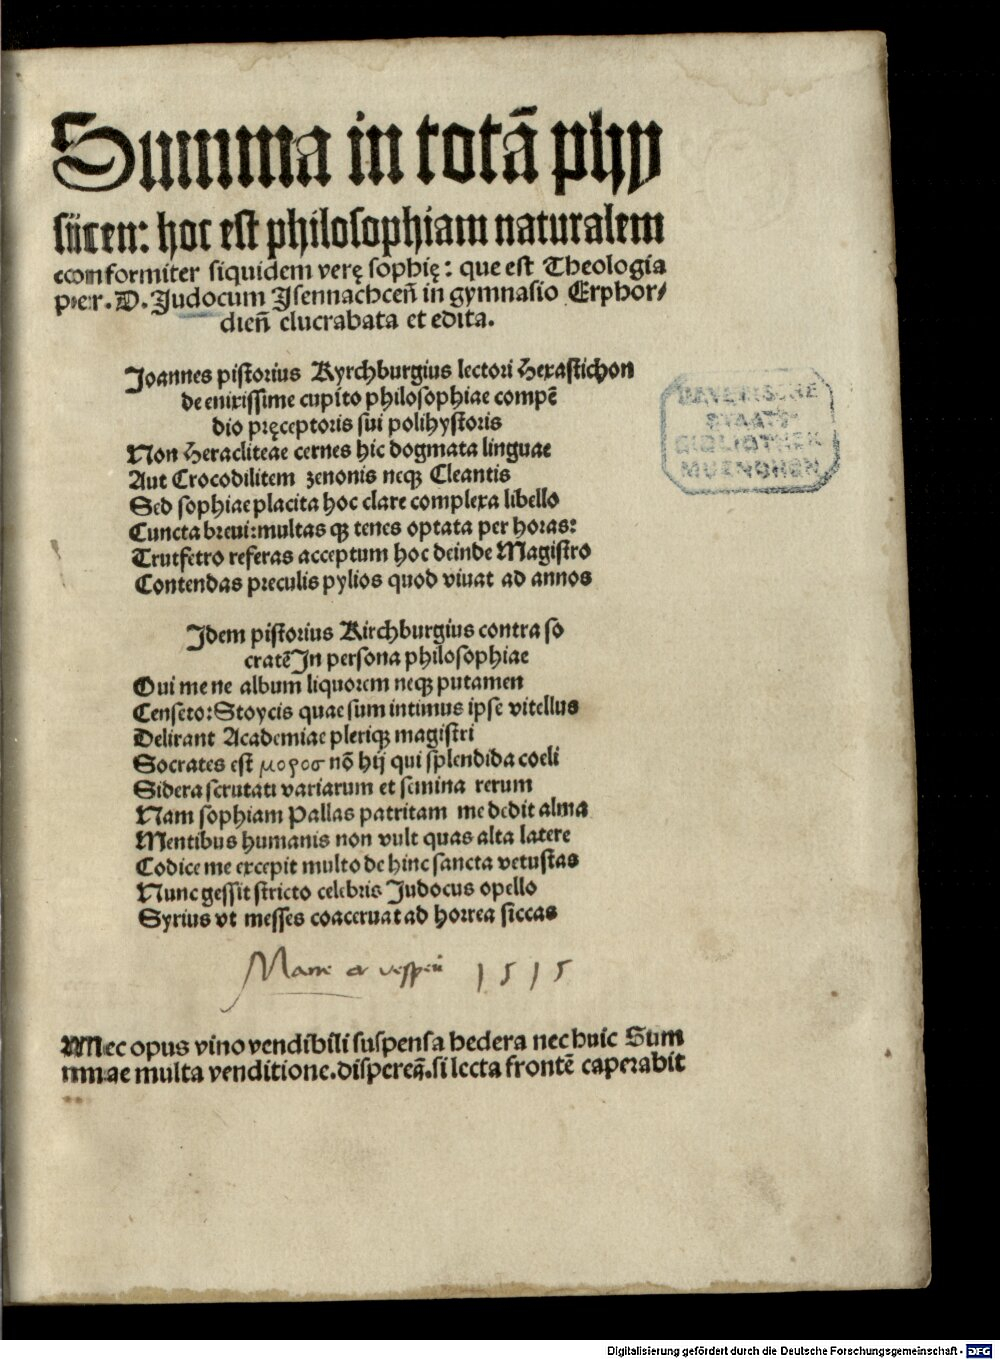 Summa in totā phy
sicen: hoc est philosophiam naturalem
conformiter siquidem verę sophię: que est Theologia
per. D. Judocum Jsennachceñ in gymnasio Erphor⸗
dieñ elucrabata et edita.
Joannes pistorius Kyrchburgius lectori Hexastichon
de enixissime cupito philosophiae compē
dio pręceptoris sui polihystoris
Non Heracliteae cernes hic dogmata linguae
Aut Crocodilitem zenonis neqꝫ Cleantis
Sed sophiae placita hoc clare complexa libello
Cuncta breui: multas qꝫ tenes optata per horas:
Trutfetro referas acceptum hoc deinde Magistro
Contendas preculis pylios quod viuat ad annos
Jdem pistorius Kirchburgius contra so
cratē Jn persona philosophiae
Oui me ne album liquorem neqꝫ putamen
Censeto: Stoycis quae sum intimus ipse vitellus
Delirant Academiae pleriqꝫ magistri
Socrates est μοροσ nō hij qui splendida coeli
Sidera scrutati variarum et semina rerum
Nam sophiam Pallas patritam me dedit alma
Mentibus humanis non vult quas alta latere
Codice me excepit multo de hinc sancta vetustas
Nunc gessit stricto celebris Judocus opello
Syrius vt messes coaceruat ad horrea siccas
1515
Nec opus vino vendibili suspensa hedera nec huic Sum
mae multa venditione. dispereā. si lecta frontē caperabit
BAYERISCHE
STAATS-
BIBLIOTHEK
MUENCHEN
Digitalisierung gefördert durch die Deutsche Forschungsgemeinschaft - DFG